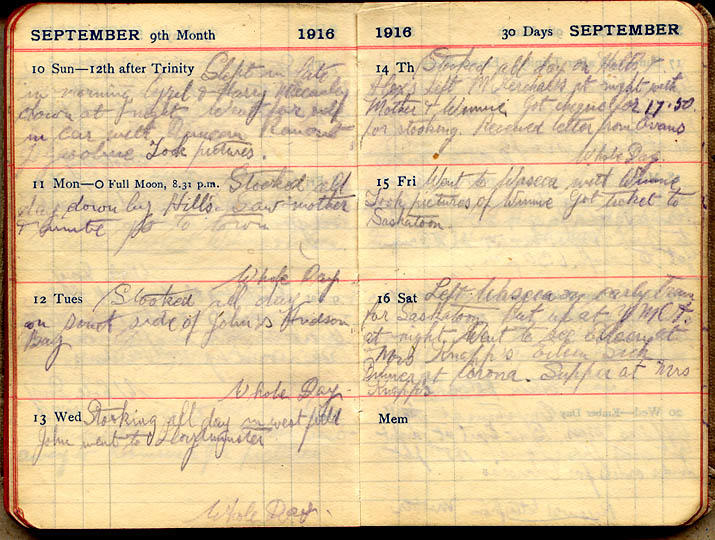 SEPTEMBER 9th Month 1916
10 Sun—12th after Trinity Slept in late
in morning & Harry
down at night
in car with
Gasoline Took pictures.
11 Mon—O Full Moon, 8.31 p.m. Stooked all
day down by Hill's. Saw mother
go to town
Whole Day
12 Tues Stooked all day
on south side of John's Hudson
Bay
Whole Day
13 Wed Stooking all day in west field
John went to Lloydminster
Whole Day.
1916 30 Days SEPTEMBER
14 Th Stooked all day on
Left at night with
Mother & Winnie. Got cheque for 17.50
for stooking. Received letter from Evans
Whole Day.
15 Fri Went to Waseca with Winnie
Took pictures of Winnie Got ticket to
Saskatoon.
16 Sat Left Waseca on early Train
for Saskatoon Put up at Y.M.C.A.
at night. Went to see at
Mrs Knapp's Eileen Sick
Dinner at Corona. Supper at Mrs
Knapp's
Mem
20 Wed—Ember Day